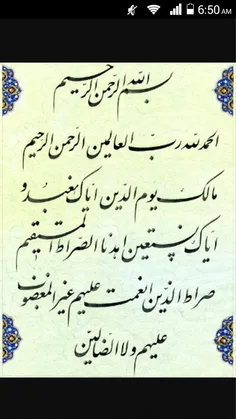 6:50 AM
بسم الله الرحمن الرحیم
الحمد لله رب العالمین الرحمن الرحیم
مالک یوم الدین ایاک نعبد و
ایاک نستعین اهدنا الصراط المستقیم
صراط الذین انعمت علیهم غیر المغضوب
علیهم ولا الضّالّین